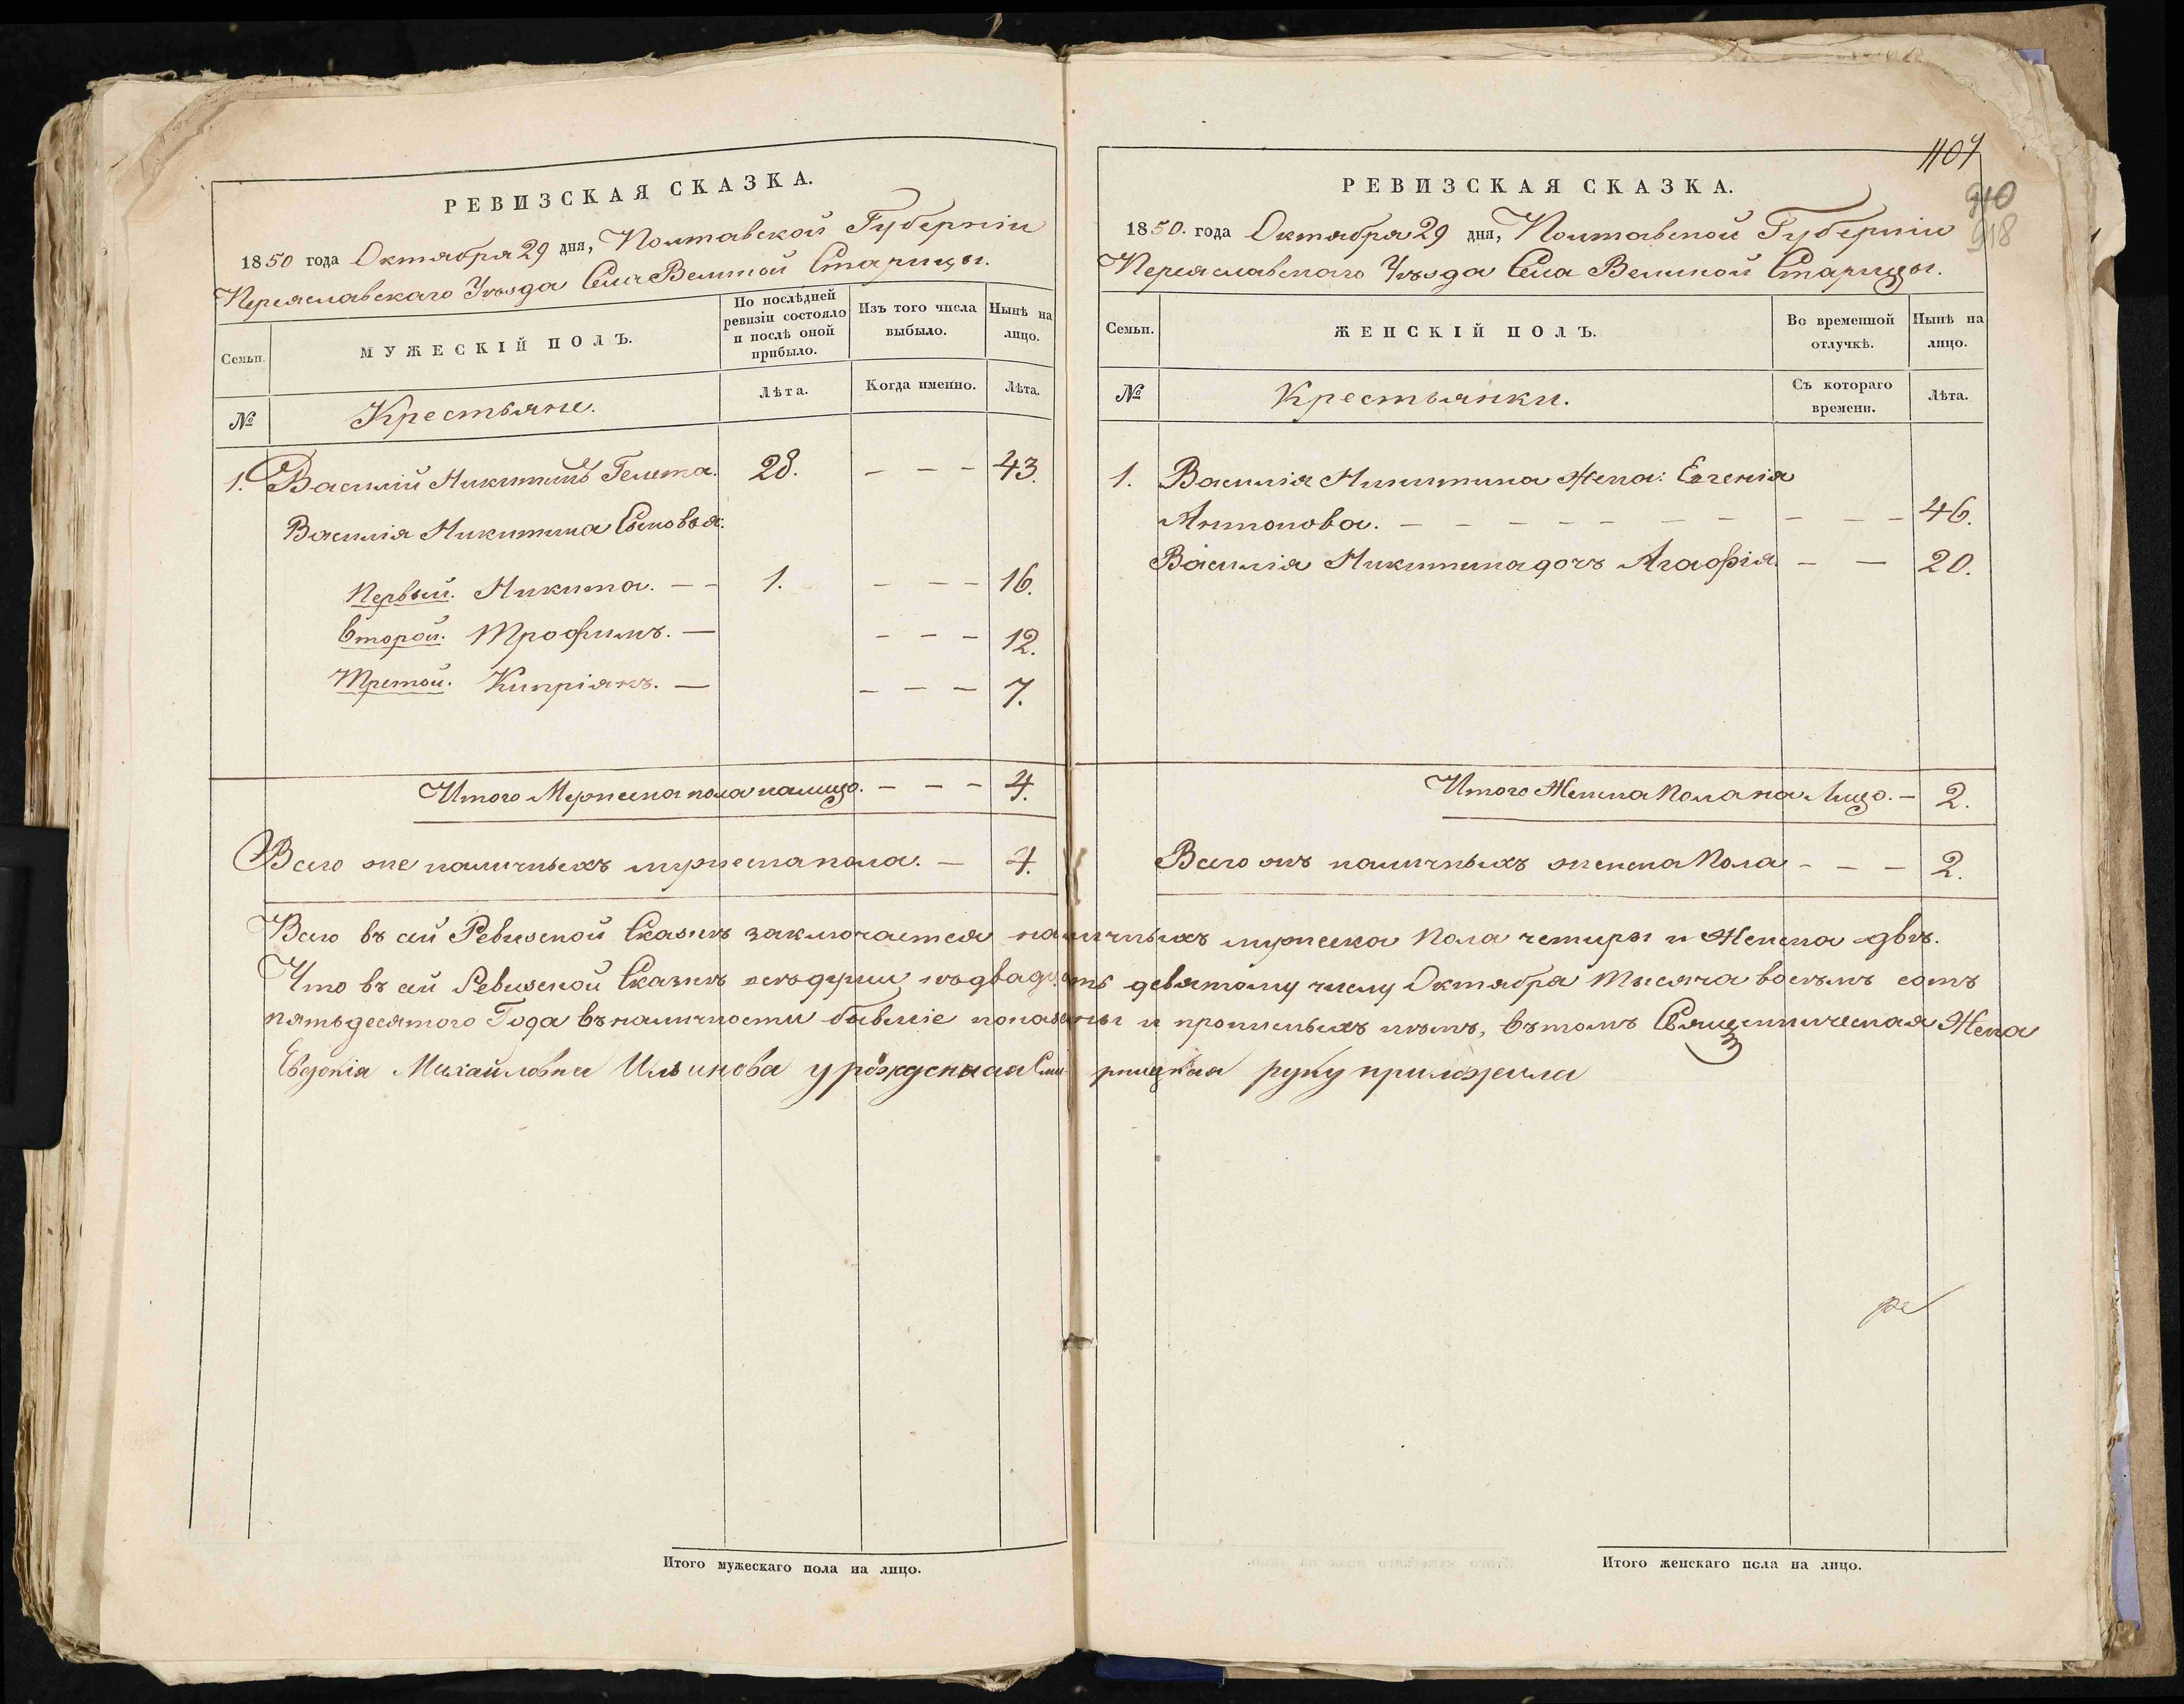 РЕВИЗСКАЯ СКАЗКА.
1850 года Октября 29 дня, Полтавской Губерніи
Переяславскаго Уѣзда Села Великой Старицы.
Семьи.
МУЖЕСКІЙ ПОЛЪ.
По послѣдней ревизіи состояло и послѣ оной прибыло.
Изъ того числа выбыло.
Нынѣ на лицо.
№
Крестьяне.
Лѣта.
Когда именно.
Лѣта.
1. Василій Никитинъ Гелета. 28. - - - 43.
Василія Никитина Сыновья:
Первый. Никита. - - 1. - - - 16.
Второй. Трофимъ. - - - - 12.
Третой. Кипріянъ. - - - - 7.
Итого Мужеска пола налицо. - - - 4.
Всего же наличныхъ мужеска пола. - 4.
1107
910
918
РЕВИЗСКАЯ СКАЗКА.
1850. года Октября 29 дня, Полтавской Губерніи
Переяславскаго Уѣзда Села Великой Старицы.
Семьи.
ЖЕНСКІЙ ПОЛЪ.
Во временной отлучкѣ.
Нынѣ на лицо.
№
Крестьянки.
Съ котораго времени.
Лѣта.
1. Василія Никитина Жена: Евгенія
Антонова. - - - - - - - - - - 46.
Василія Никитина дочь Агафія. - - 20.
Итого Женска Пола на Лицо. - 2.
Всего жъ наличныхъ женска Пола - - - 2.
Всего въ сей Ревизской Сказкѣ заключается наличныхъ мужеска Пола четыри и Женска двѣ.
Что въ сей Ревизской Сказкѣ всѣ души къ двадцать девятому числу Октября тысяча восѣмъ сотъ
пятьдесятого Года въ наличности бывшіе показаны и прописныхъ нѣтъ, въ томъ Священническая Жена
Евдокія Михайловна Ильинова урожденная руку приложила
Итого мужескаго пола на лицо.
Итого женскаго пола на лицо.